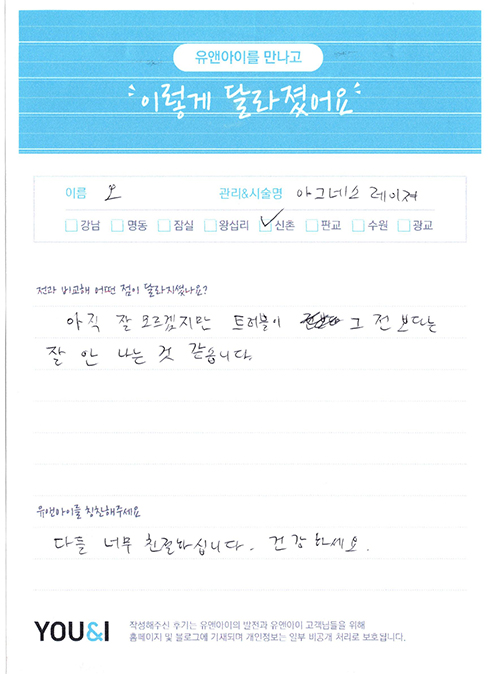 유앤아이를 만나고
이렇게 달라졌어요
이름 오 관리&시술명 아그네스 레이져
강남 명동 잠실 왕십리 신촌 판교 수원 광교
전과 비교해 어떤 점이 달라지셨나요?
아직 잘 모르겠지만 트러블이 그 전 보다는
잘 안 나는 것 같습니다.
유앤아이를 칭찬해주세요
다들 너무 친절하십니다. 건강하세요.
YOU&I
작성해주신 후기는 유앤아이의 발전과 유앤아이 고객님들을 위해
홈페이지 및 블로그에 기재되며 개인정보는 일부 비공개 처리로 보호됩니다.